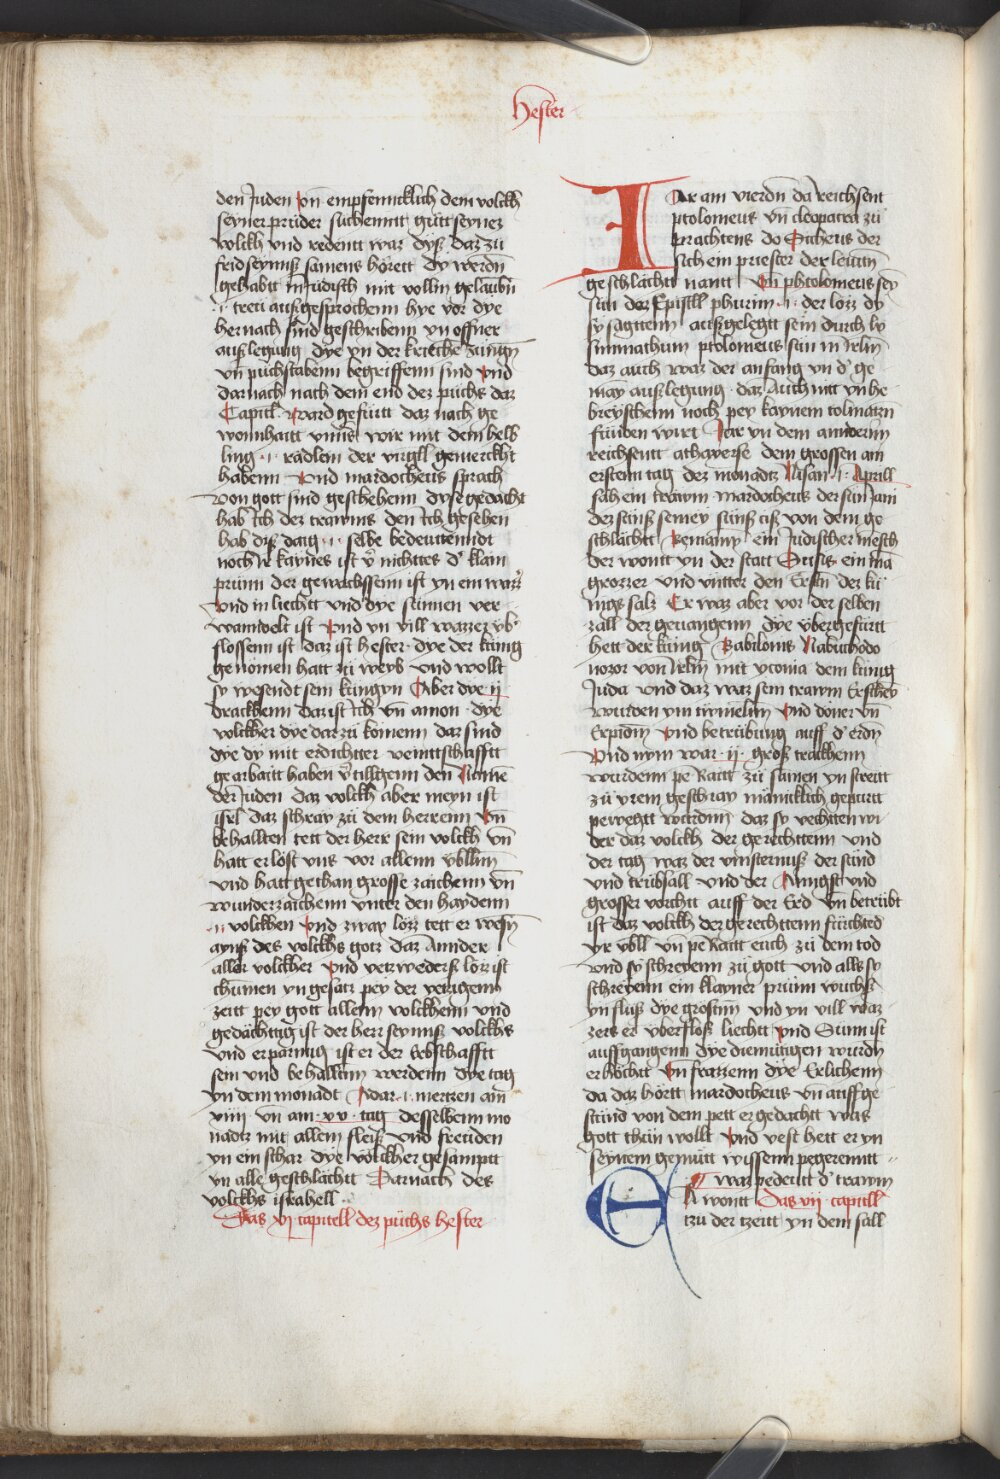 Hester
den Juden vn̄ empfenncklich dem volckh
seyner prüder süchennt gütt seynez
volckh vnd redentt waz dyß daz zü
frid seymß samens hörett dy werdn̄
gehabtt in Jüdisch mit vollin gelaubn̄
·i· treu außgesprochenn hye vor dye
hernach sind geschribenn vn offner
außlegung dye yn der kriechē züngn̄
vn püchstabenn begriffenn sind vnd
darnach nach dem end dez püchs daz
Capitl ward gefürt daz nach ge
wonnhaitt vnns wir mit dem helb
ling ·i· rädlem der virgill gemerckht
habenn Vnd mardocheus sprach
von gott sind geschehenn dyse gedacht
hab Ich dez trawms den Ich gesehen
hab diß daig ·i· selbe bedeuttenndt
noch Ir kaynes ist v̄ nichttes d' klain
prünn der gewachssenn ist yn ein wazz̄
Vnd in liechtt vnd dye sünnen ver
wanndelt ist Vnd yn vill wazzez vb'
flossenn ist daz ist hester · dye der künig
genomen hatt zü weyb vnd wollt
sy wesendt sein küngyn Aber dye ij
drackhenn daz ist Ich vn̄ amon · dye
völckher dye dar zü komenn daz sind
dye dy mit erdichtter veinttschafftt
gearbaitt haben v̄tillgenn den Namē
der Juden daz volckh aber meyn ist
isrl daz schray zü dem herrenn Vn̄
behallten tett der herr sein volckh vn̄
hatt erlost vns vor allenn vbllnn̄
vnd hatt gethan grosse zaichenn vn̄
wunderzaichenn vnter den haydenn
·ii· volckhen Vnd zway lözz tett er wesn̄
aynß des volckhs gotz daz Annder
aller volckher Vnd yetzwederß lözz ist
chümen yn gesatz pey der yetzigenn
zeitt pey gott allenn volckhenn vnd
gedächttig ist der herr seynnß volckhs
vnd erparmig ist er der Erbschafftt
sein vnd behalltnn werdenn dye tag
yn dem monadt Adar ·i· mertzen am
xiiij · vn̄ am · xv · tag desselbenn mo
nadtz mit allem fleiß vnd freuden
yn ein schar dye völckher gesamptt
yn alle geschlächtt Darnach des
volckhs israhell
Das vj capitell dez püchs hester
Iar am vierdn̄ da reichsent
ptolomeus vn cleopatra zü
prachtens do Sitheus der
sich ein priester der leuitn̄
geschlächtt nantt Vn̄ phtolomeus sey
sün der Epistll phurim ·i· der lözz dy
sy sagttenn außgelegtt sein durch ly
simmathum ptolomeus sün in Irlm̄
daz auch waz der anfang vn d' ge
main außlegung · daz auch nitt yn he
breyschenn noch pey kaynem tolmatzn̄
fünden wirt Iar yn dem annderm̄
reichsentt athaverse dem grossen am
erstenn tag dez monadtz Nisan ·i· Aprill
sah ein trawm mardocheus der sün Jari
dez sünß semey sünß ciß von dem ge
schlächtt Beniamyn ein Jüdischer mēsch
der wont yn der statt Susis ein mā
grozzer vnd vntter den Erstn̄ dez kü
nigs salz Er waz aber vor der selben
zall der geuangenn dye vbergefürtt
hett der künig Babilonis Nabuchodo
nozor von Irlm̄ mit yconia dem künig
Juda vnd daz waz sein trawm Erschey
wurden ym timelnn̄ Vnd döner vn̄
Erpidm̄ vnd betrübung auff d' erdn̄
Vnd nym war · ij · groß trackhenn
wurdenn peraitt zü samen yn streitt
zü yrem geschray mämcklich gepurtt
pewegtt wurdnn̄ daz sy vechtten wi
der daz volckh der gerechttenn vnd
der tag waz der vinsternuß der sünd
vnd trübsall vnd der Anngst vnd
grosser vorchtt auff der Erd Vn̄ betrübt
ist daz volckh der gerechttenn fürchted
yr vbll vn̄ peraitt euch zü dem tod
vnd sy schreyenn zü gott vnd alls sy
schreyenn ein klayner prünn wuchß
yn fluß dye grostnn̄ vnd yn vill waz
zers er vberfloß liechtt Vnd Sünn ist
auffgangenn dye diemüttigen wurdn̄
erhöchtt Vn frazzenn dye Erlichenn
da daz hörtt mardocheus vn̄ auff ge
stünd von dem pett er gedacht was
gott thün wollt Vnd vest hett er yn
seynem gemütt wissenn pegerenntt
waz pedeutt d' trawm
wontt Das vij capitell
tzü der tzeitt yn dem sall